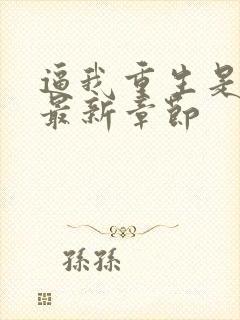 逼我重生是
最新章节
孫孫